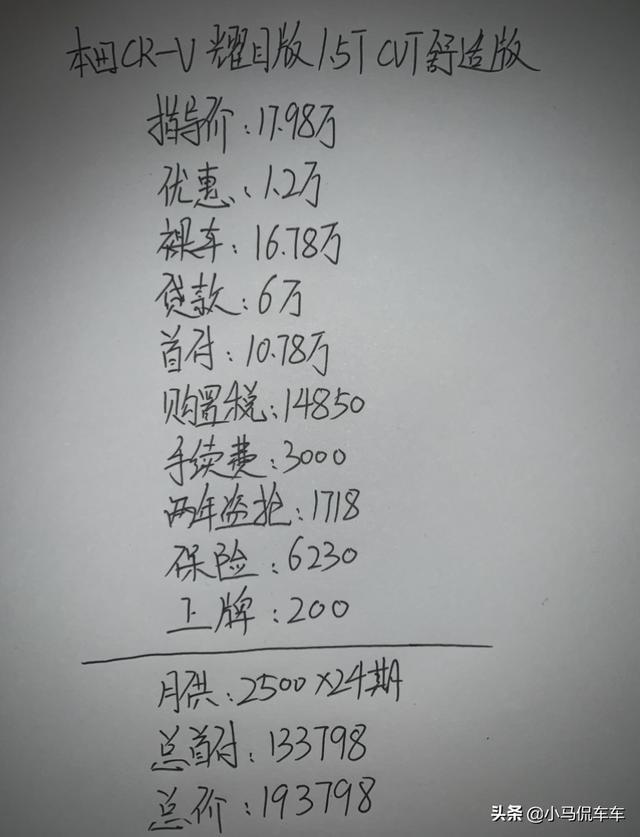 本田CR-V 耀目版 1.5T CVT 舒适版
指导价:17.98万
优惠:1.2万
裸车:16.78万
贷款:6万
首付:10.78万
购置税:14850
手续费:3000
两年盗抢:1718
保险:6230
上牌:200
月供:2500×24期
总首付:133798
总价:193798
头条 @小马侃车车